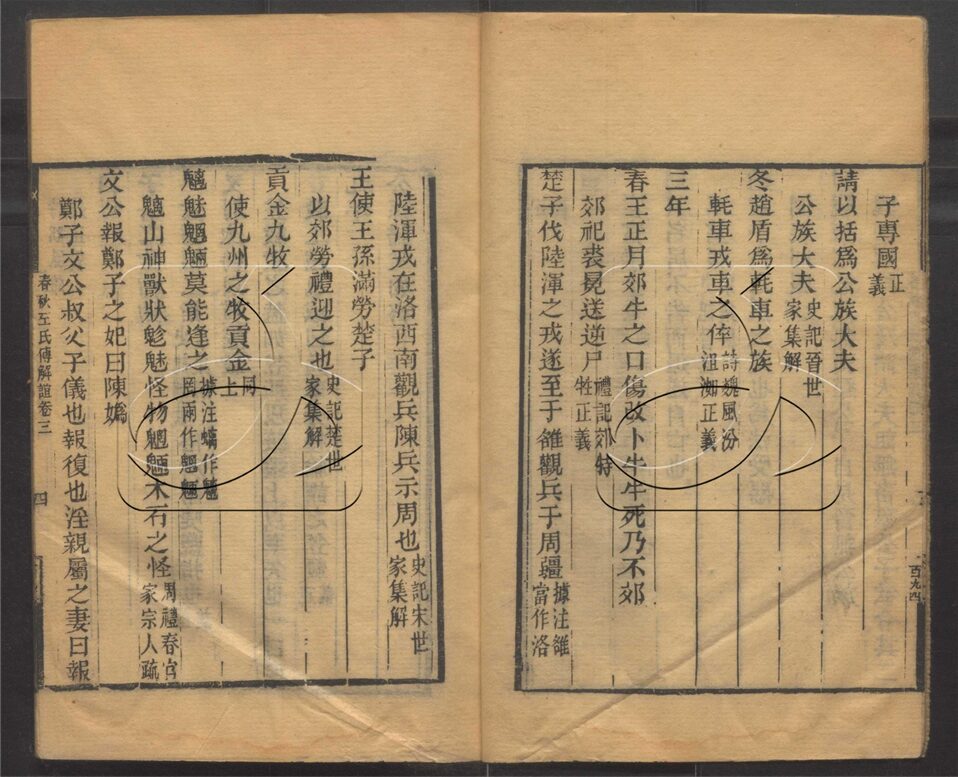 子專國正義
請以括爲公族大夫
公族大夫史記晉世家集解
冬趙盾爲軞車之族
軞車戎車之倅詩魏風汾沮洳正義
三年
春王正月郊牛之口傷改卜牛牛死乃不郊
郊祀裘冕送逆尸禮記郊特牲正義
楚子伐陸渾之戎遂至于雒觀兵于周疆據注雒當作洛
陸渾戎在洛西南觀兵陳兵示周也史記宋世家集解
王使王孫滿勞楚子
以郊勞禮迎之也史記楚世家集解
貢金九牧
使九州之牧貢金同上
魑魅魍魎莫能逢之據注螭作魑罔兩作魍魎
魑山神獸狀魅怪物魍魎木石之怪周禮春官家宗人疏
文公報鄭子之妃曰陳嬀
鄭子文公叔父子儀也報復也淫親屬之妻曰報
春秋左氏傳解誼卷三
四
百九四